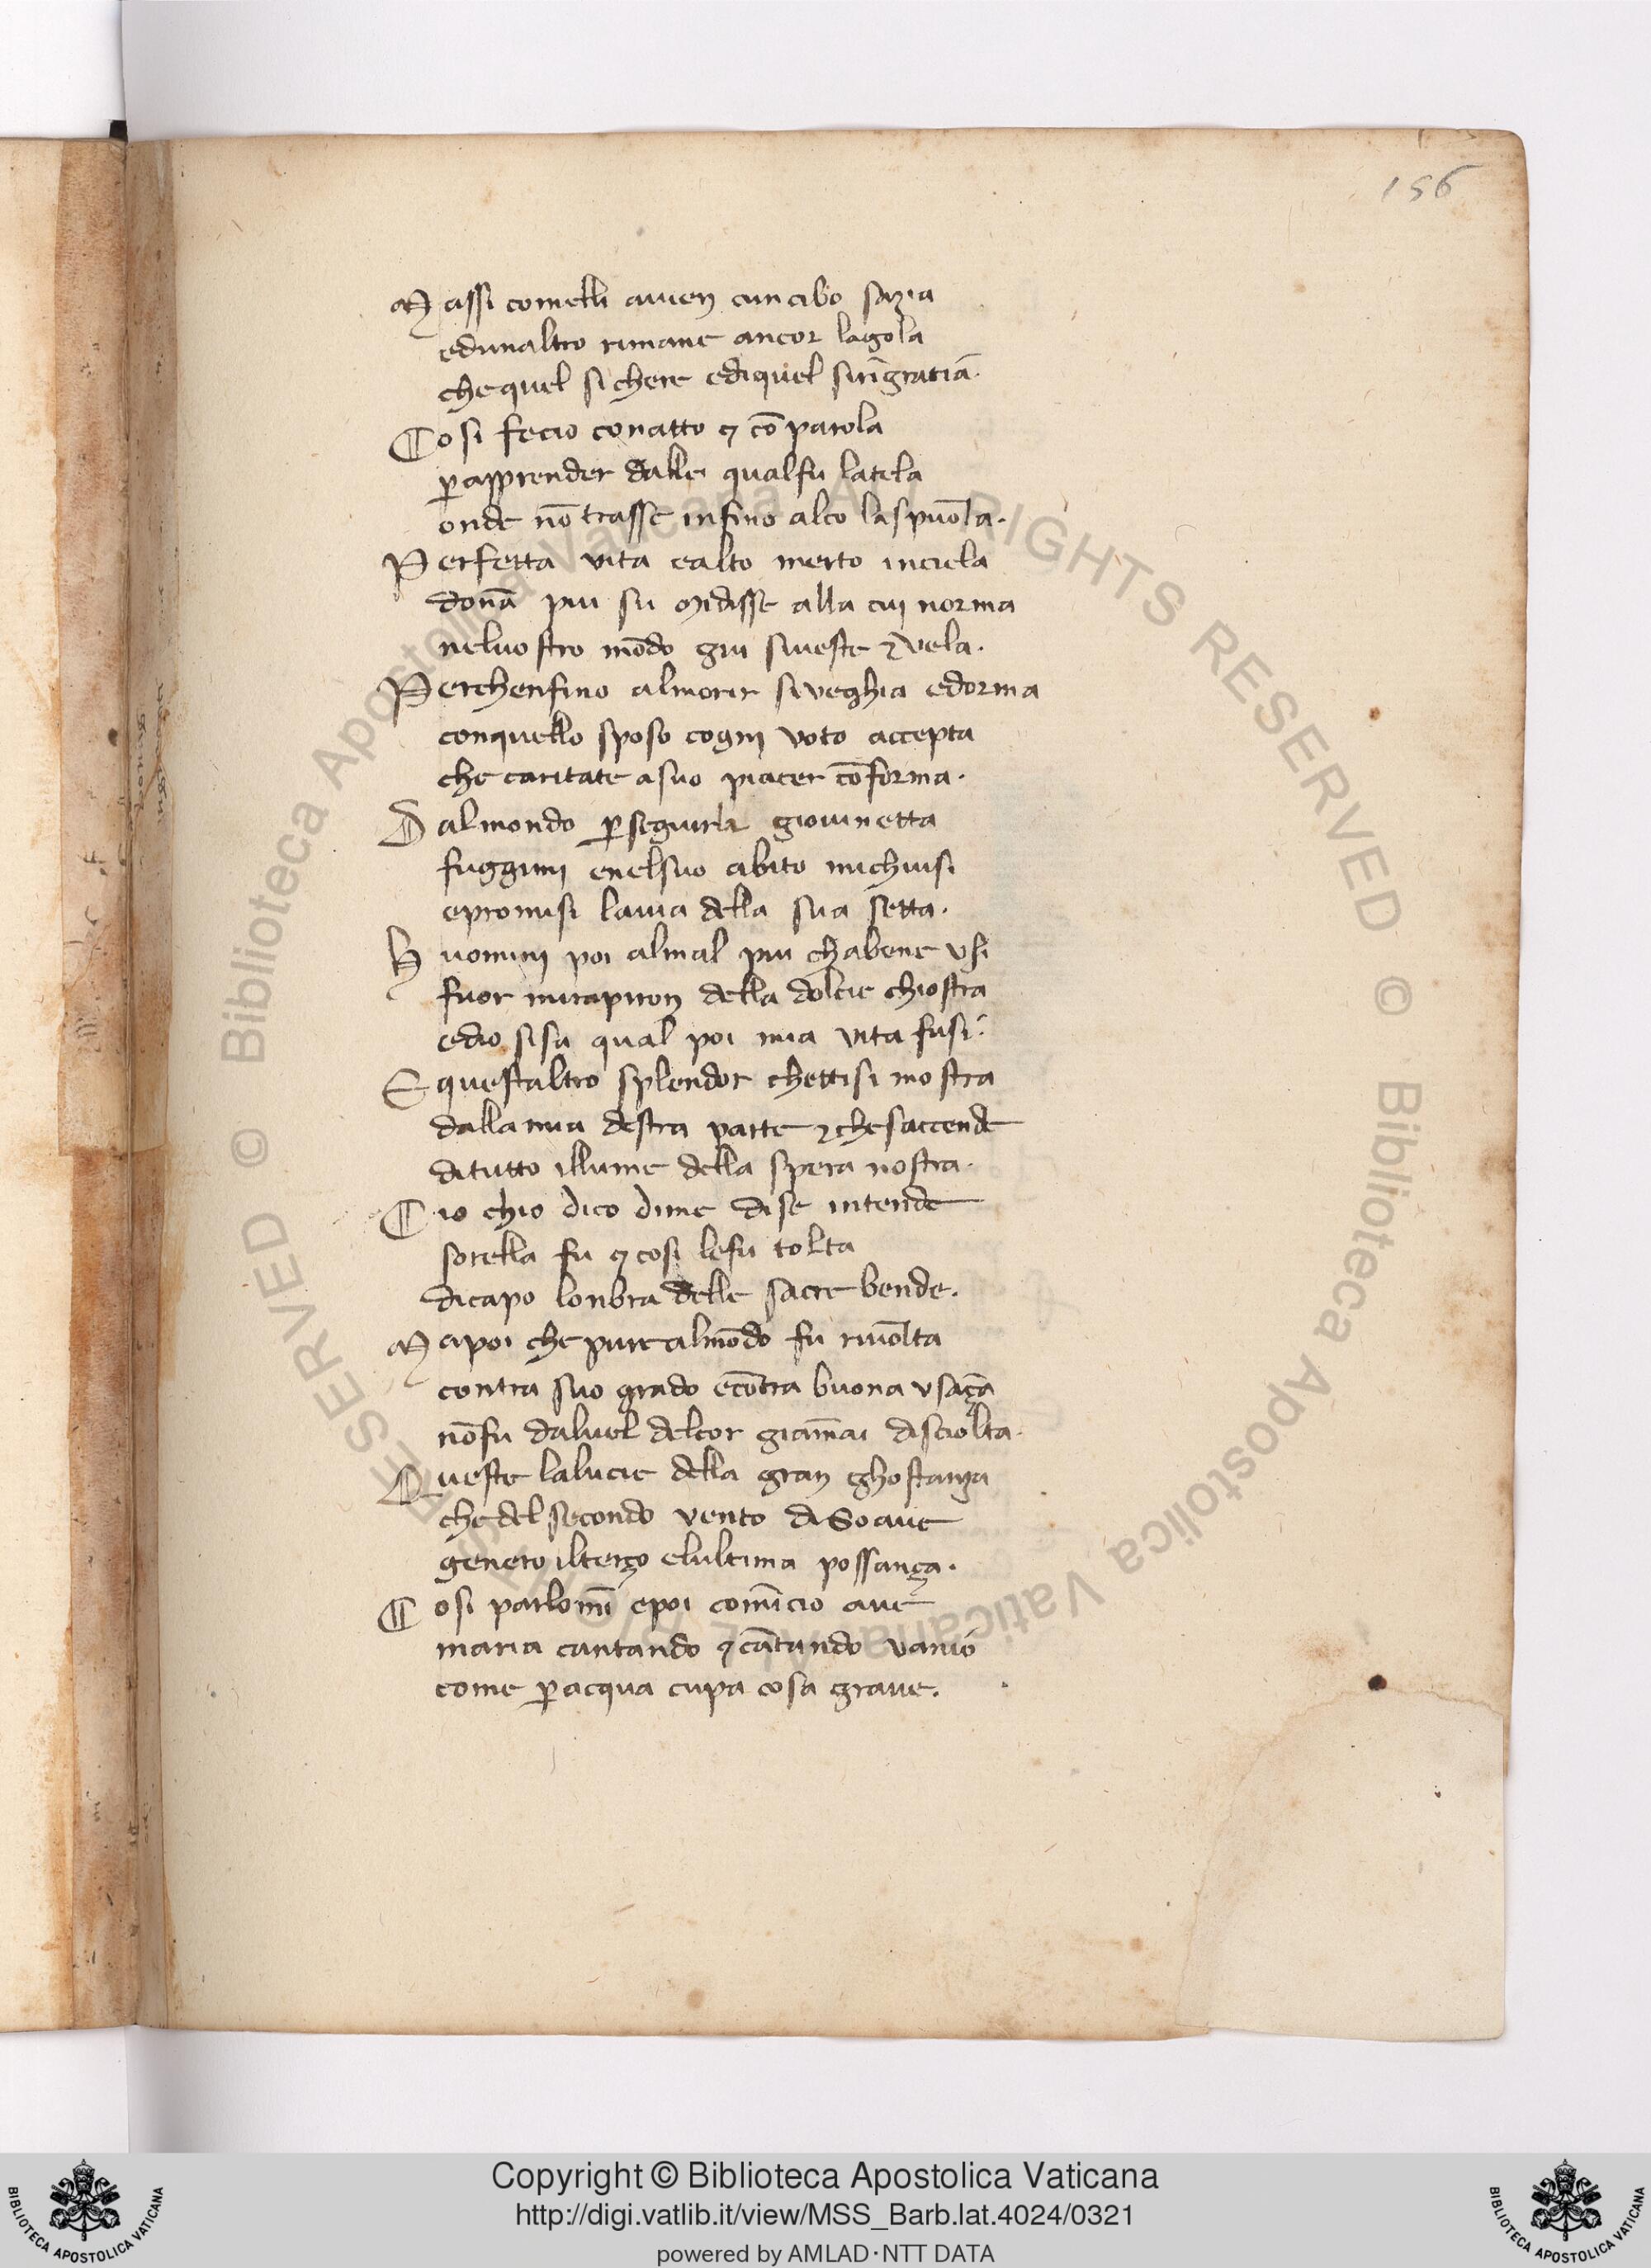 156
Massi comelli avien cun cibo sazia
edunaltro rimane ancor lagola
che quel si chere ediquel sirĩgratia.
Cosi fecio conatto ⁊ cõ parola
ꝑ apprender dallei qualfu latela
onde nõ trasse infino alco laspuõla.
Perfetta vita ealto merto inciela
donã piu su midisse alla cui norma
neluostro mõdo giu siueste ⁊ vela.
Perchenfino almorir siveghia edorma
conquello sposo cogni voto accepta
che caritate asuo piacer cõforma.
Dalmondo ꝑ seguirla giouinetta
fuggimi enelsuo abito michiusi
epromisi lauia della sua setta.
Huomini poi almal piu chabene vsi
fuor mirapiron della dolcie chiostra
edio sisa qual poi mia vita fusi.
E questaltro splendor chettisi mostra
dallamia destra parte ⁊ chesaccende
ditutto illume della spera nostra.
Cio chio dico dime dise intende
sorella fu ⁊ cosi lefu tolta
dicapo lonbra delle sacre bende.
Mapoi che pure almõdo fu riuõlta
contra suo grado ecõtra buona vsãça
nõfu daluel delcor giãmai disciolta.
Queste lalucie della gran ghostanza
che del secondo vento di Soaue
genero ilterço elultima possança.
Cosi parlomĩ epoi comĩcio aue
maria cantando ⁊ cãtando vanio
come ꝑ acqua cupa cosa graue.
© Biblioteca Apostolica Vaticana ALL RIGHTS RESERVED © Biblioteca Apostolica Vaticana ALL RIGHTS RESERVED
Copyright © Biblioteca Apostolica Vaticana
http://digi.vatlib.it/view/MSS_Barb.lat.4024/0321
powered by AMLAD·NTT DATA
BIBLIOTECA APOSTOLICA VATICANA
BIBLIOTECA APOSTOLICA VATICANA